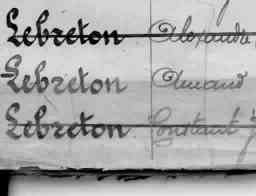 Lebreton Alexandre
Lebreton Amand
Lebreton Constant